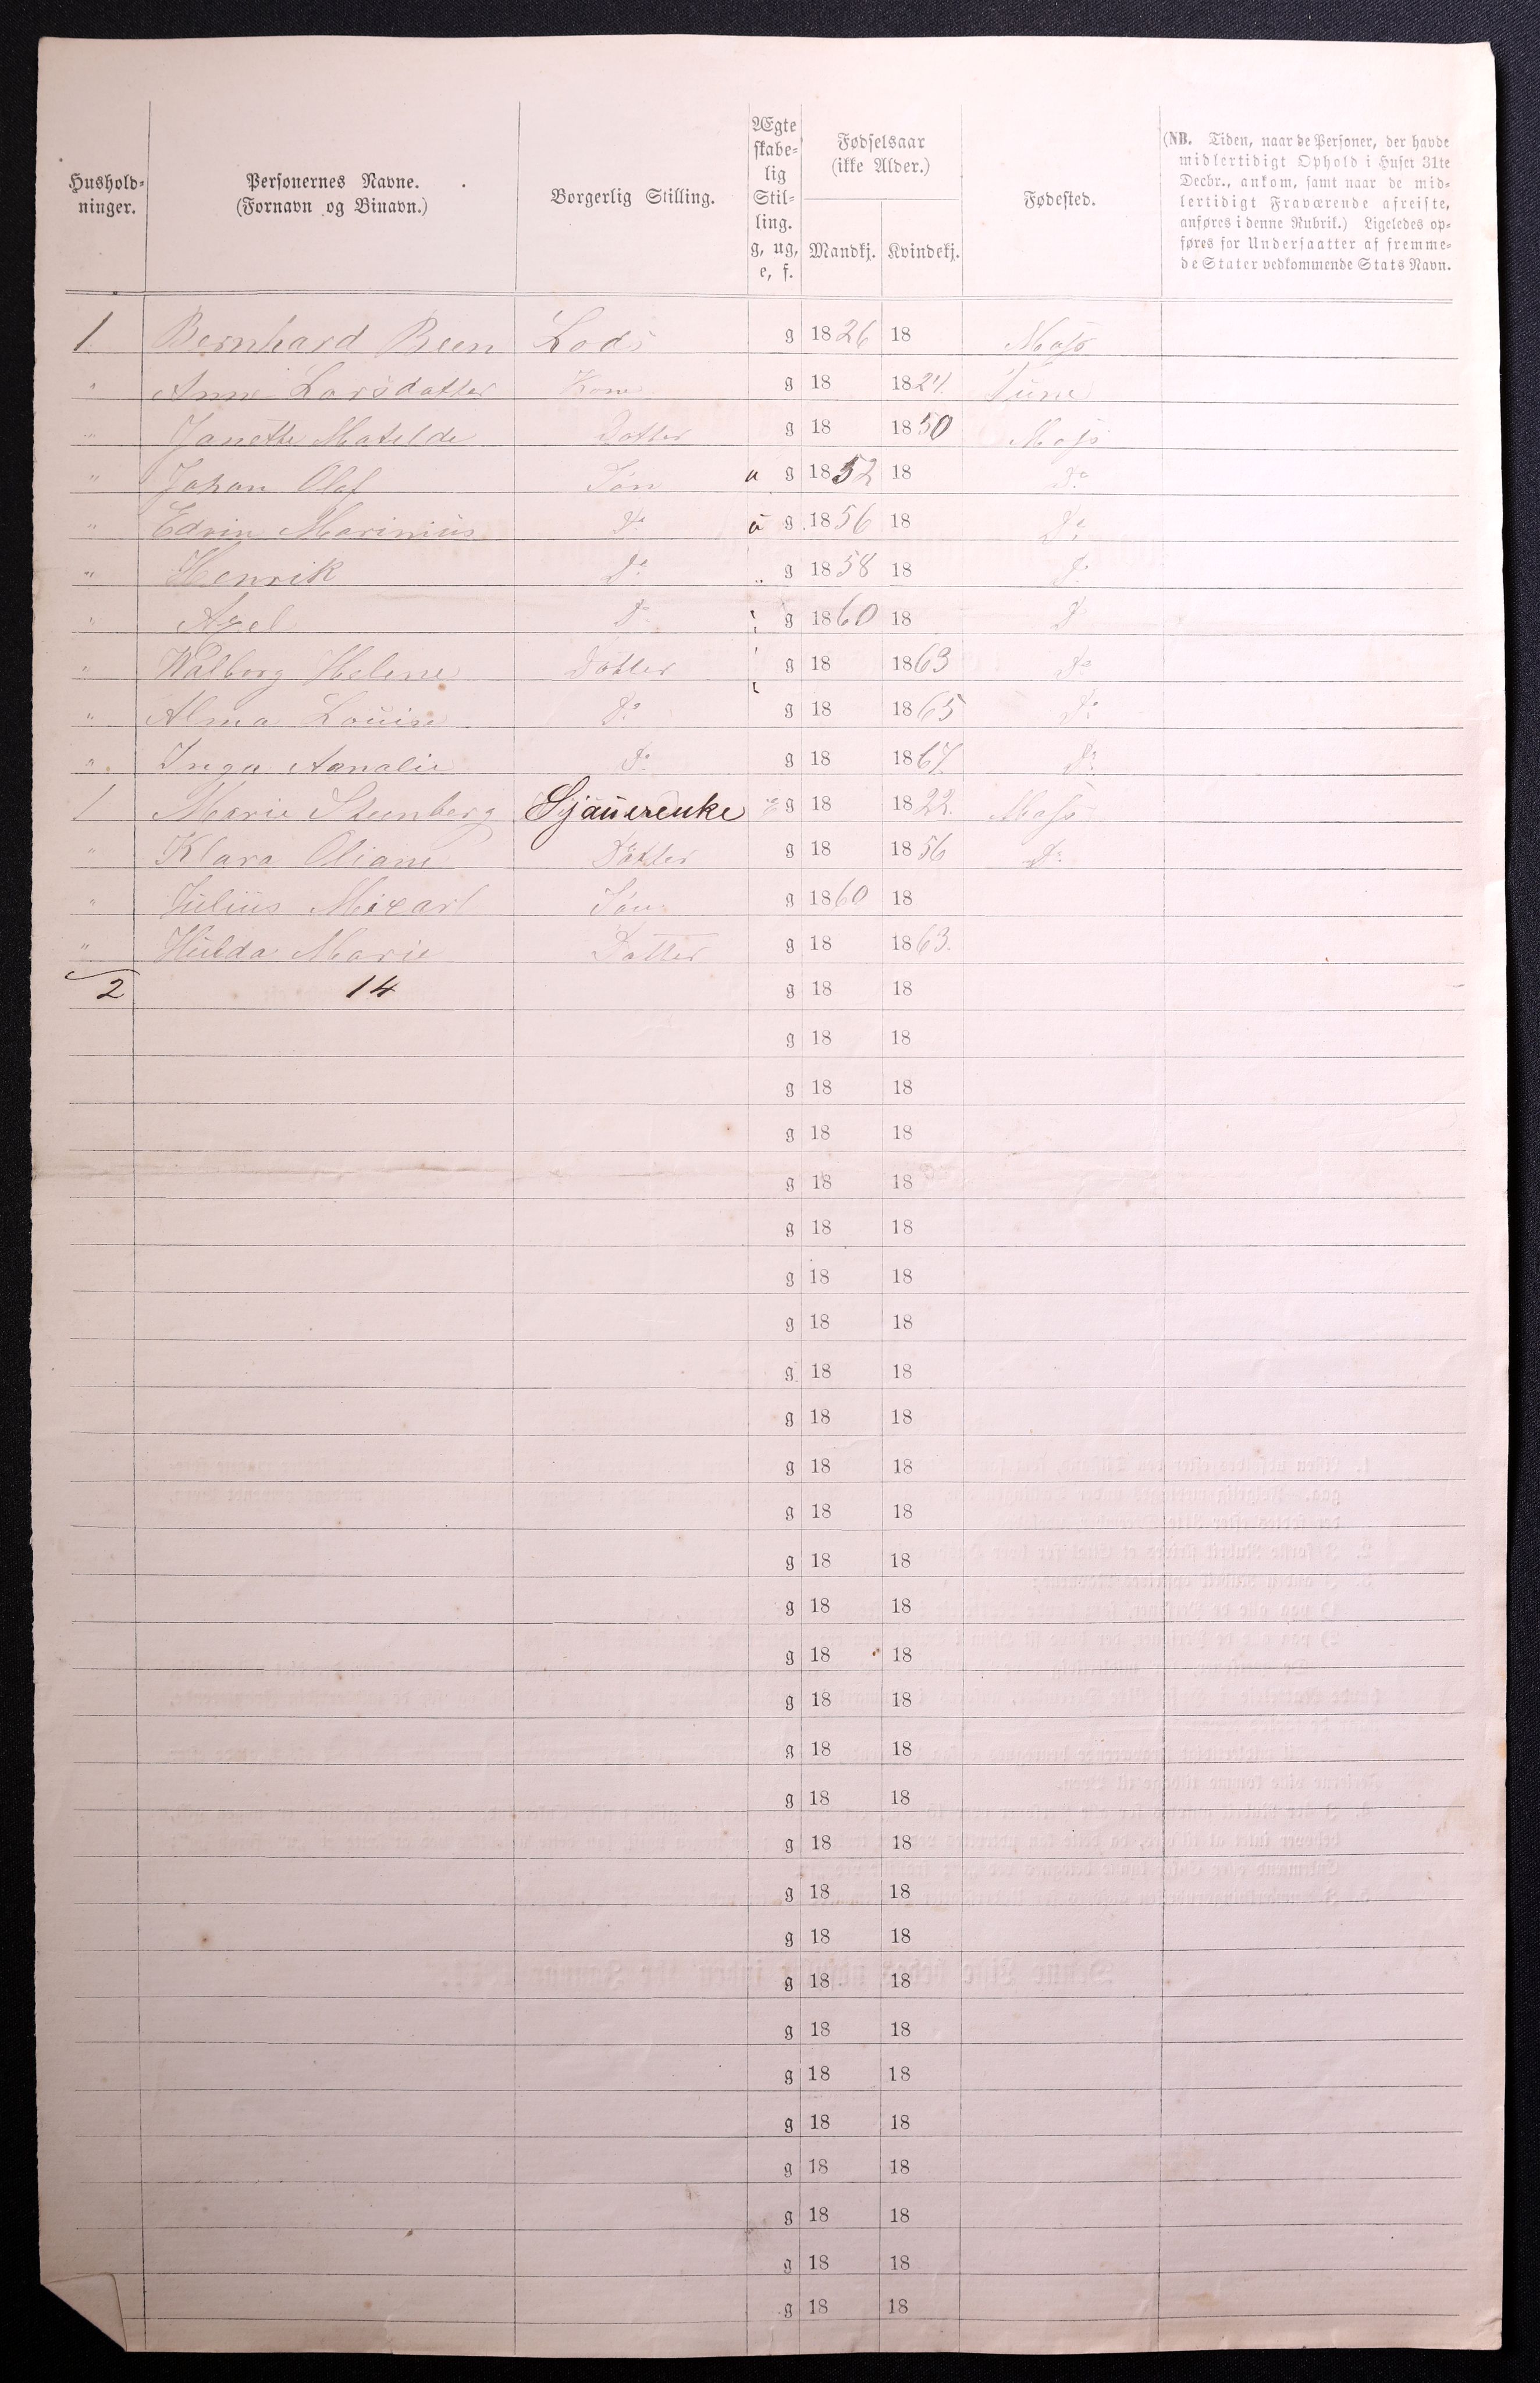 Hushold-
ninger.
Personernes Navne.
(Fornavn og Binavn.)
Borgerlig Stilling.
Ægte
skabe-
lig
Stil-
ling.
g, ug,
e, f.
Fødselsaar
(ikke Alder.)
Mandkj. Kvindekj.
Fødested.
(NB. Tiden, naar de Personer, der havde
midlertidigt Ophold i Huset 31te
Decbr., ankom, samt naar de mid-
lertidigt Fraværende afreiste,
anføres i denne Rubrik.) Ligeledes op-
føres for Undersaatter af fremme-
de Stater vedkommende Stats Navn.
1 Bernhard Been Lods g 1826 18 Moss
" Anne Larsdatter Kone g 18 1824. Tune
" Janette Matilde Datter g 18 1850 Moss
" Johan Olaf Søn u g 1852 18 Do
" Edvin Marinius Do u g 1856 18 Do
" Henrik Do " g 1858 18 Do
" Axel Do " g 1860 18 Do
" Walborg Helene Datter " g 18 1863 Do
" Alma Louise Do " g 18 1865 Do
" Inga Amalie Do g 18 1867. Do
1 Marie Steenberg Sjauerenke g 18 1822. Moss
" Klara Oliane Datter g 18 1856 Do
" Julius Søn g 1860 18
" Hulda Marie Datter g 18 1863.
2 14 g 18 18
g 18 18
g 18 18
g 18 18
g 18 18
g 18 18
g 18 18
g 18 18
g 18 18
g 18 18
g 18 18
g 18 18
g 18 18
g 18 18
g 18 18
g 18 18
g 18 18
g 18 18
g 18 18
g 18 18
g 18 18
g 18 18
g 18 18
g 18 18
g 18 18
g 18 18
g 18 18
g 18 18
g 18 18